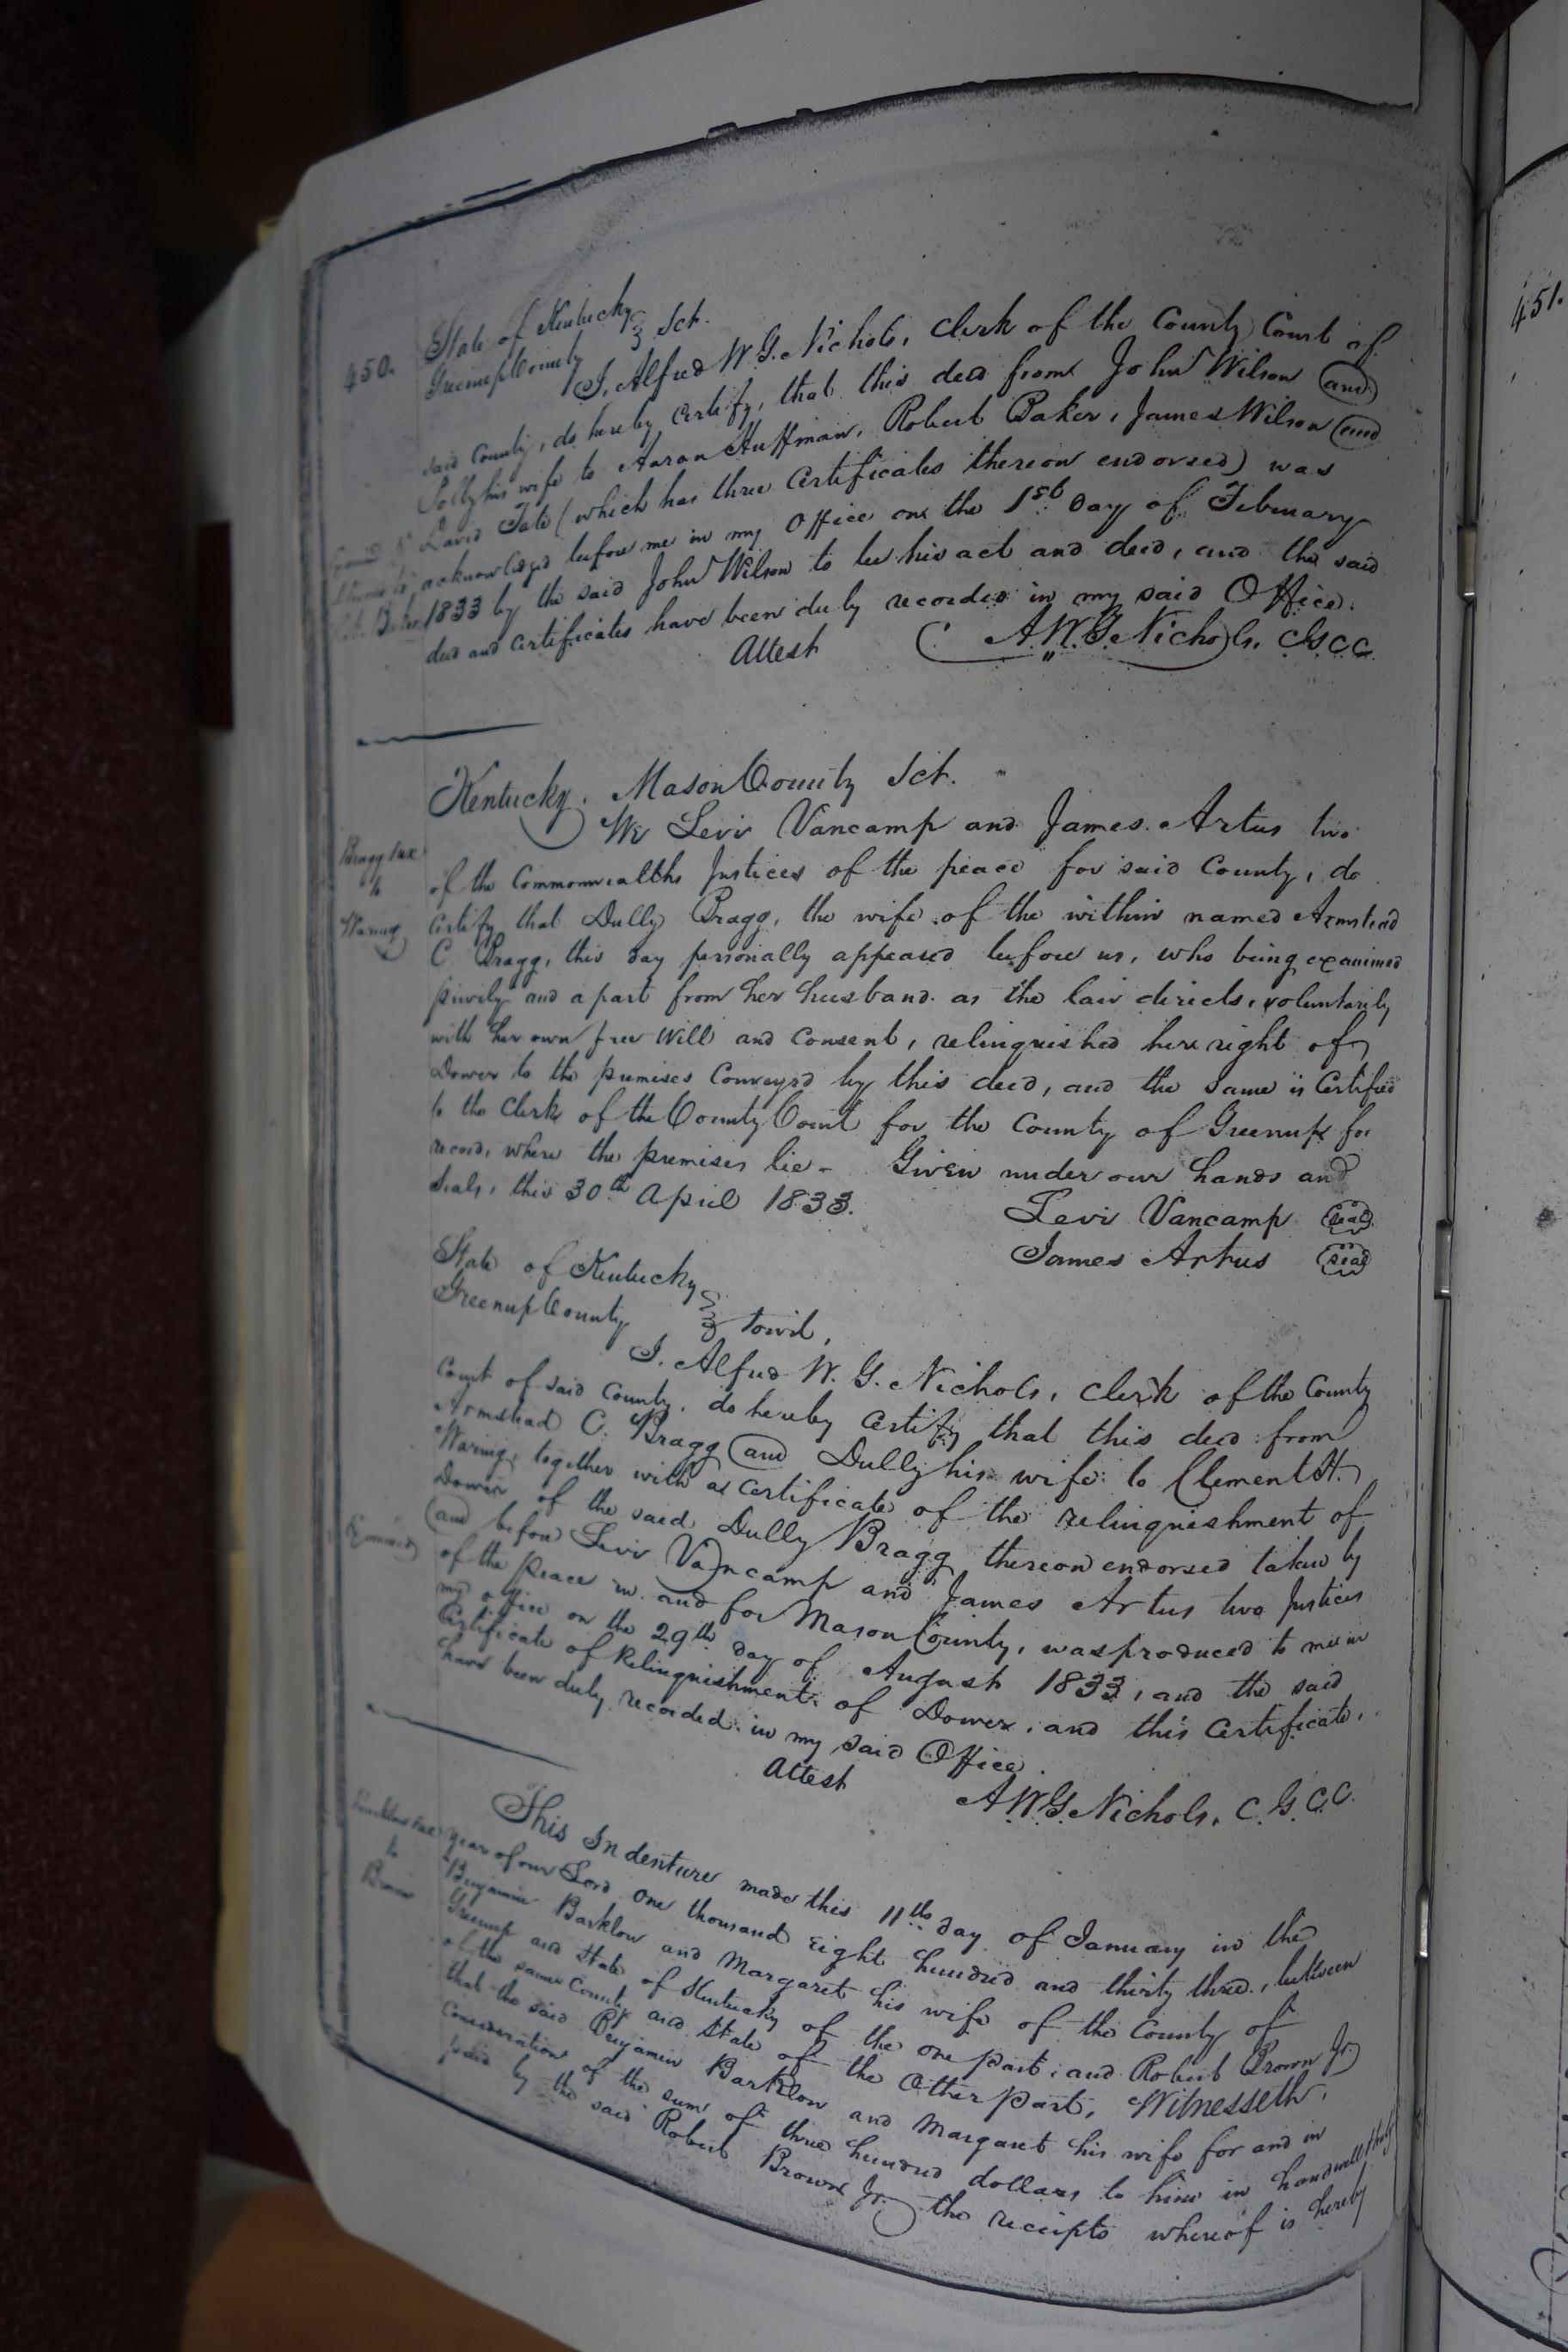 450.
State of Kentucky
Greenup County } Sct.
I, Alfred W. G. Nichols, Clerk of the County Court of
said County, do hereby certify, that this deed from John Wilson and
Polly his wife to Aaron Huffman, Robert Baker, James Wilson and
David Tate (which has three Certificates thereon endorsed) was
acknowledged before me in my Office on the 1st day of February
1833 by the said John Wilson to be his act and deed, and the said
deed and certificates have been duly recorded in my said Office.
Attest A. W. G. Nichols, C.G.C.C.
Kentucky, Mason County Sct.
We Levi Vancamp and James Artus two
Bragg &ux
to
Waring
of the Commonwealths Justices of the peace for said County, do
certify that Dully Bragg, the wife of the within named Armstead
C. Bragg, this day personally appeared before us, who being examined
privily and apart from her husband as the law directs, voluntarily
with her own free will and consent, relinquished her right of
Dower to the premises Conveyed by this deed, and the same is Certified
to the Clerk of the County Court for the County of Greenup for
record, where the premises lie - Given under our hands and
Seals, this 30th April 1833.
Levi Vancamp seal
James Artus seal
State of Kentucky
Greenup County } towit,
I, Alfred W. G. Nichols, Clerk of the County
Court of said County, do hereby certify that this deed from
Armstead C. Bragg and Dully his wife to Clement H.
Waring, together with a Certificate of the relinquishment of
Dower of the said Dully Bragg thereon endorsed taken by
Examined
and before Levi Vancamp and James Artus two Justices
of the Peace in and for Mason County, was produced to me in
my office on the 29th day of August 1833, and the said
Certificate of Relinquishment of Dower, and this Certificate,
have been duly recorded in my said Office.
Attest A W G Nichols, C.G.C.C.
This Indenture made this 11th day of January in the
Barklow &ux
to
Brown
year of our Lord one thousand eight hundred and thirty three, between
Benjamin Barklow and Margaret his wife of the County of
Greenup and State of Kentucky of the one part, and Robert Brown Jr
of the same County and State of the Other part, Witnesseth,
that the said Benjamin Barklow and Margaret his wife for and in
Consideration of the sum of three hundred dollars to him in hand well & truly
paid by the said Robert Brown Jr. the receipts whereof is hereby
451.